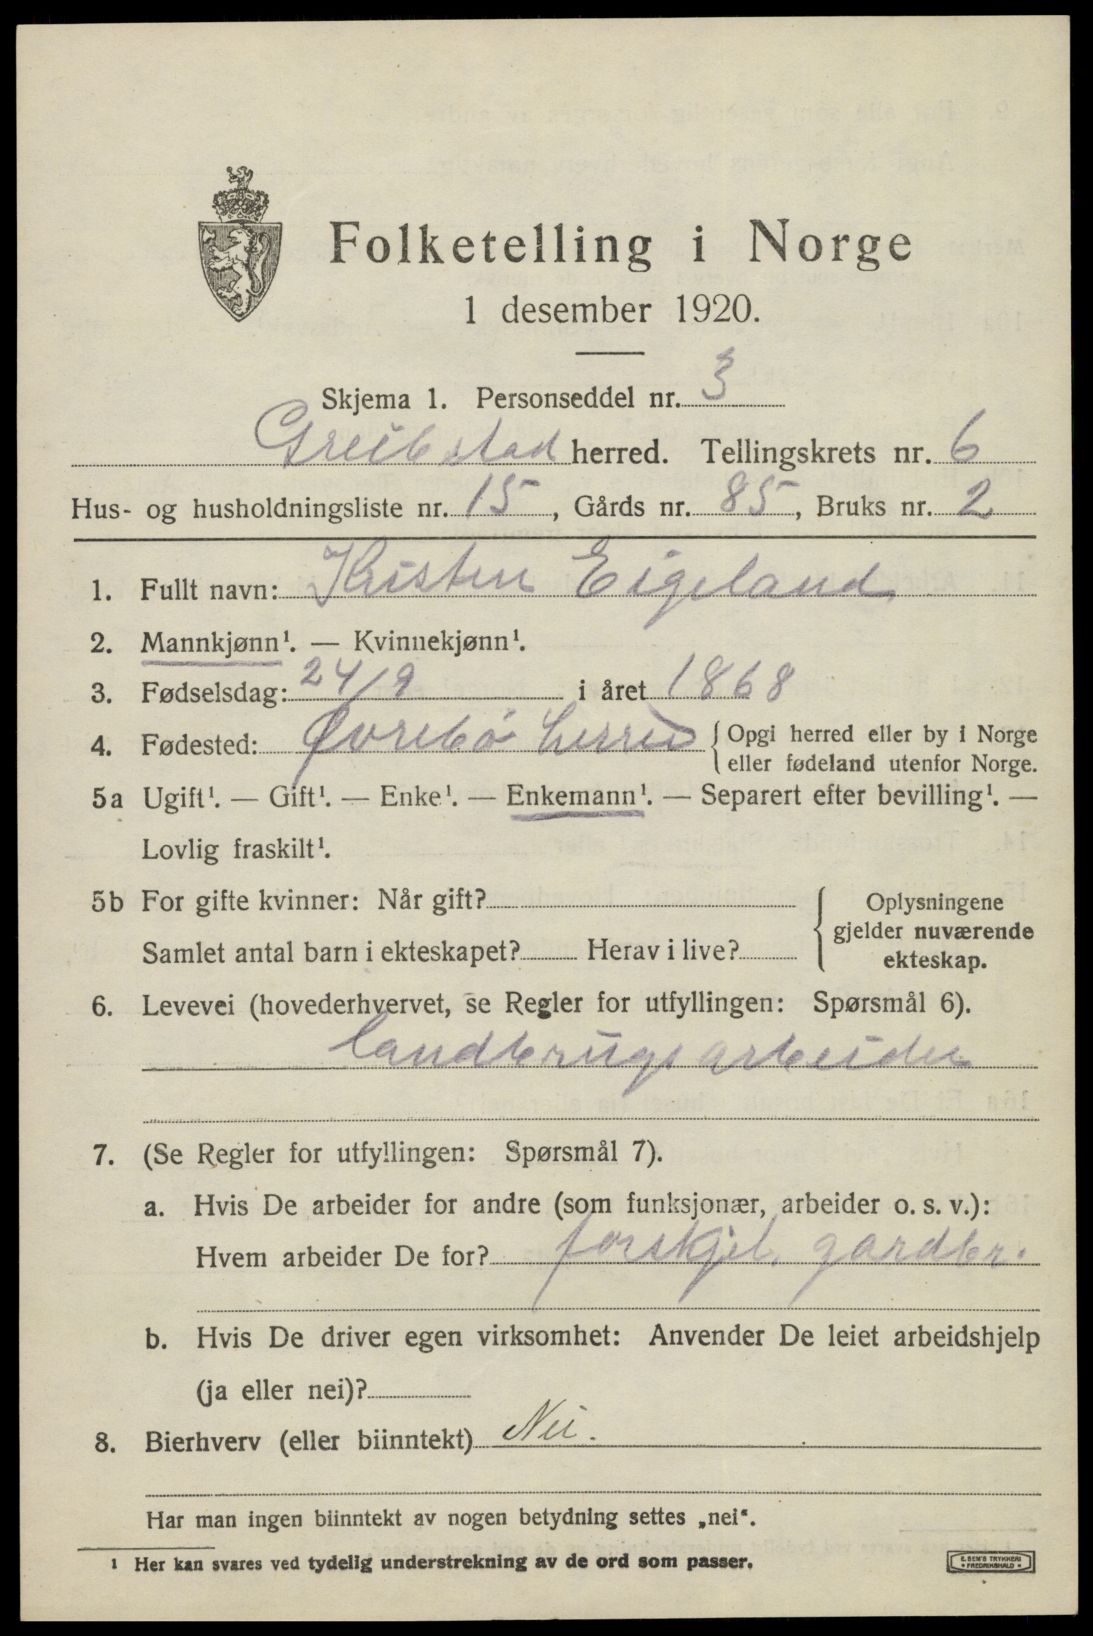 Folketelling i Norge
1 desember 1920.
Skjema 1. Personseddel nr. 3
Greibstad herred. Tellingskrets nr. 6
Hus- og husholdningsliste nr. 15, Gårds nr. 85, Bruks nr. 2
1. Fullt navn: Kristen Eigeland
2. Mannkjønn¹. — Kvinnekjønn¹.
3. Fødselsdag: 24/9 i året 1868
4. Fødested: Øvrebö herred { Opgi herred eller by i Norge
eller fødeland utenfor Norge.
5a Ugift¹. — Gift¹. — Enke¹. — Enkemann¹. — Separert efter bevilling¹. —
Lovlig fraskilt¹.
5b For gifte kvinner: Når gift? { Oplysningene
gjelder nuværende
Samlet antal barn i ekteskapet? Herav i live? ekteskap.
6. Levevei (hovederhvervet, se Regler for utfyllingen: Spørsmål 6).
landbrugsarbeider
7. (Se Regler for utfyllingen: Spørsmål 7).
a. Hvis De arbeider for andre (som funksjonær, arbeider o. s. v.):
Hvem arbeider De for? forskjel. gardbr.
b. Hvis De driver egen virksomhet: Anvender De leiet arbeidshjelp
(ja eller nei)?
8. Bierhverv (eller biinntekt) Nei.
Har man ingen biinntekt av nogen betydning settes „nei“.
¹ Her kan svares ved tydelig understrekning av de ord som passer.
E. SEM'S TRYKKERI
• FREDRIKSHALD •